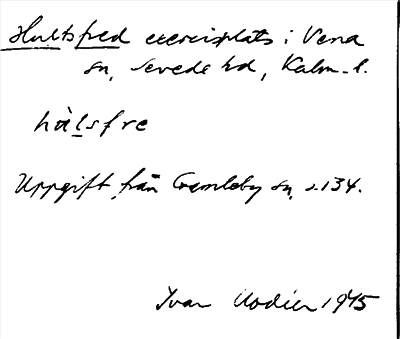 Hultsfred exercisplats i Vena
sn, Sevede hd, Kalm. l.
hälsfre
Uppgift från Gamleby sn, s. 134.
Ivar Modéer 1945